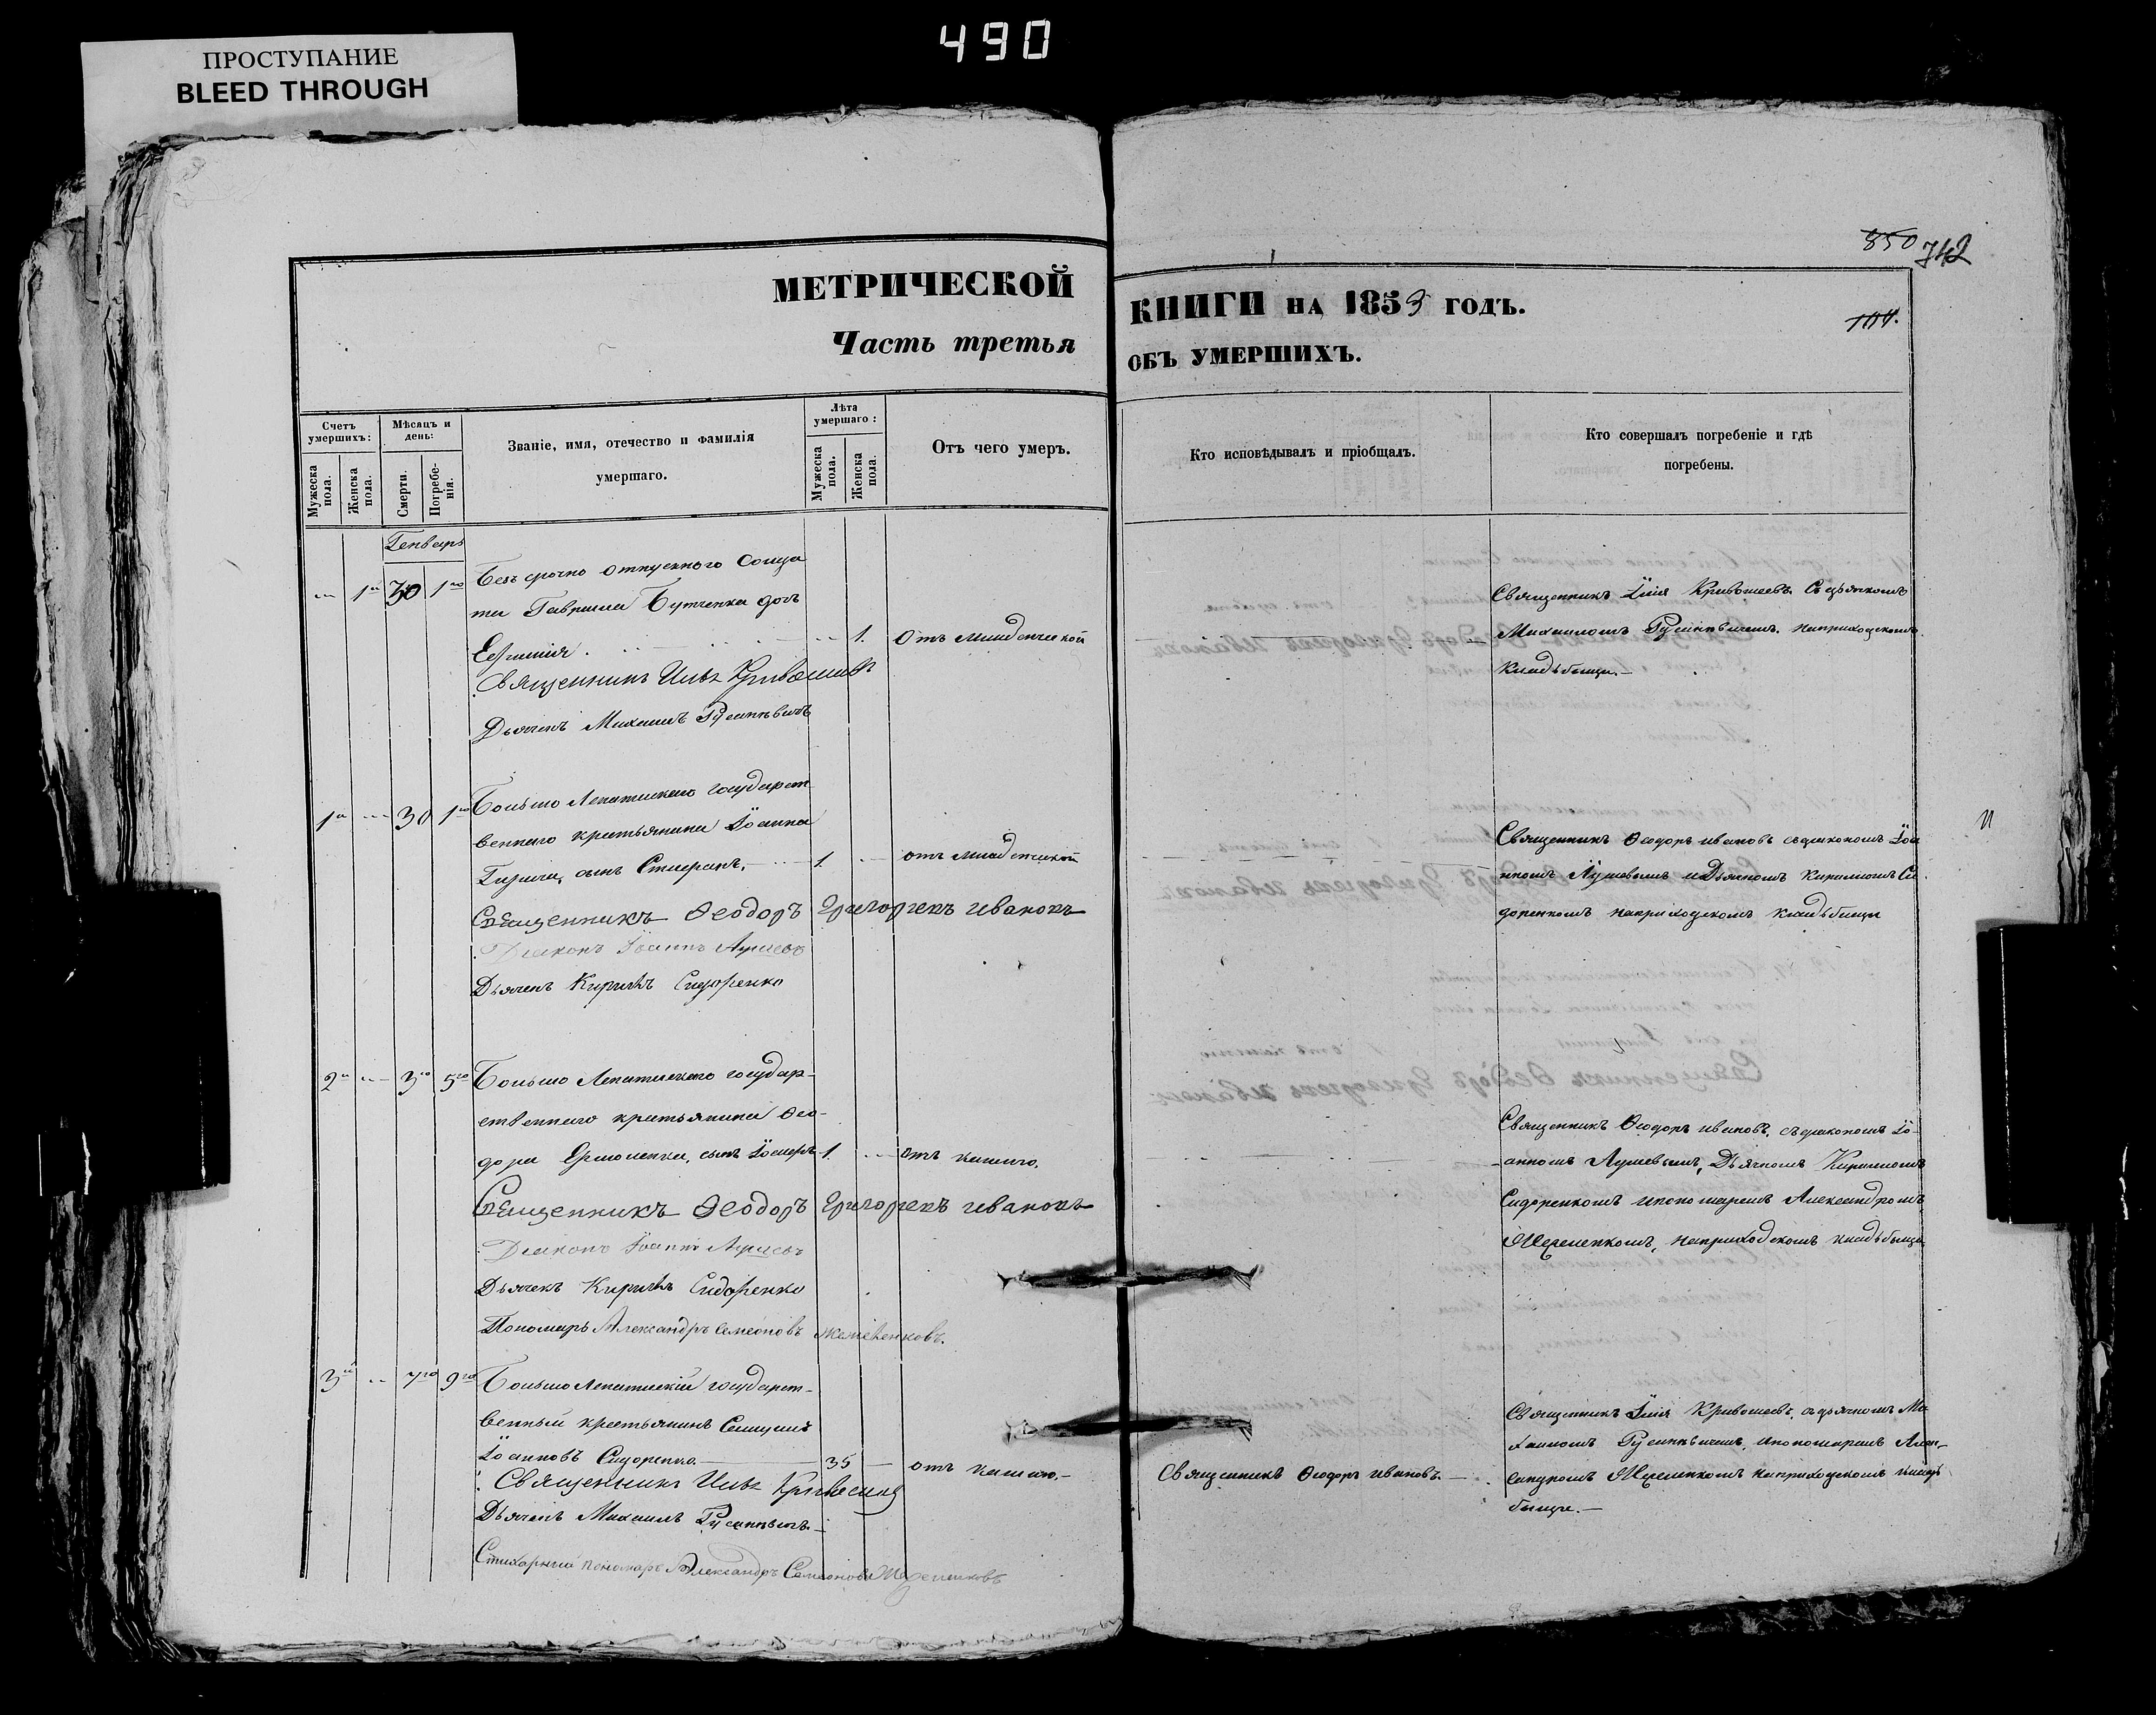 490
ПРОСТУПАНИЕ
BLEED THROUGH
850 742
МЕТРИЧЕСКОЙ КНИГИ НА 1853 ГОДЪ.
104.
Часть третья ОБЪ УМЕРШИХЪ.
Счетъ умершихъ:
Мужеска пола.
Женска пола.
Мѣсяцъ и день:
Смерти.
Погребенія.
Званіе, имя, отечество и фамилія умершаго.
Лѣта умершаго:
Мужеска пола.
Женска пола.
Отъ чего умеръ.
Кто исповѣдывалъ и пріобщалъ.
Кто совершалъ погребеніе и гдѣ погребены.
Генварь
1я 30 1го
Безъ срочно отпускного Солда
та Гавриила дочь
Евфимія 1. Отъ младенческой
Священникъ Илья Кривошеевъ
Дьячекъ Михаилъ
Священникъ Илія Кривошеевъ Съ дьячкомъ
Михаиломъ наприходскомъ
Кладьбищи.
1й 30 1го
Большо Лепатискаго государст
веннаго крестьянина Іоанна
сынъ 1. отъ младенческой
Священникъ Ѳеодоръ Григорьевъ Ивановъ
Діаконъ Іоаннъ
Дьячекъ Кириллъ Сидоренко
Священникъ Ѳеодоръ Ивановъ съ діакономъ Іоа
нномъ и Дьячкомъ Кирилломъ Си
доренкомъ наприходскомъ кладьбищи
2й 3го 5го
Большо Лепатискаго государ-
ственнаго крестьянина Ѳео-
дора Ермоленка, сынъ Іосифъ 1. Отъ кашлю.
Священникъ Ѳеодоръ Григорьевъ Ивановъ
Діаконъ Іоаннъ
Дьячекъ Кириллъ Сидоренко
Пономарь Александръ Семеоновъ
Священникъ Ѳеодоръ Ивановъ, съ діакономъ Іо-
анномъ Дьячкомъ Кирилломъ
Сидоренкомъ и пономаремъ Александромъ
наприходскомъ кладьбищи
3й 7го 9го
Большо Лепатискій государст-
венный крестьянинъ
Іоанновъ Сидоренко 35 отъ кашлю.
Священникъ Илья
Дьячекъ Михаилъ
Стихарный пономарь Александръ Семеоновъ
Священникъ Ѳеодоръ Ивановъ.
Священникъ Илія Кривошеевъ, съ дьячкомъ Ми
хаиломъ и пономаремъ Алек-
сандромъ наприходскомъ кладь
бищи.